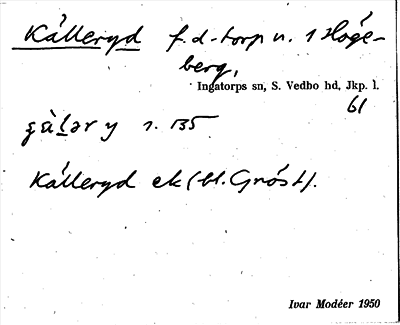 Källeryd f.d. torp u. 1 Höge-
berg,
Ingatorps sn, S. Vedbo hd, Jkp. l.
61
1. 135
Källeryd ek (bl. Gröst).
Ivar Modéer 1950